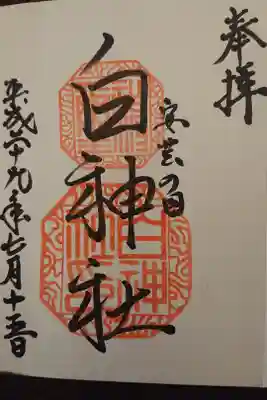 奉拝
安芸の国
白神社
平成廿九年七月十五日